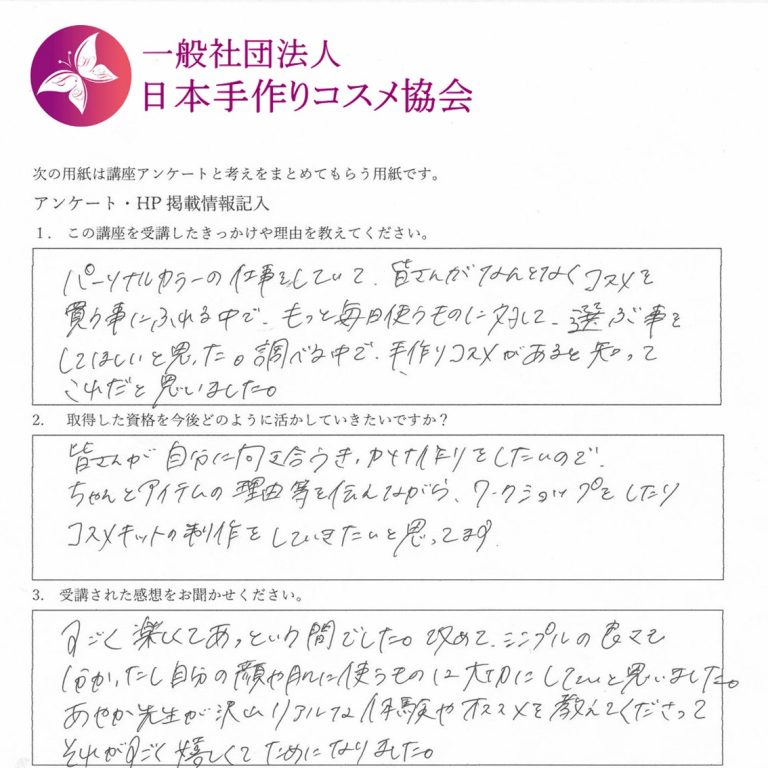 一般社団法人
日本手作りコスメ協会
次の用紙は講座アンケートと考えをまとめてもらう用紙です。
アンケート・HP 掲載情報記入
1. この講座を受講したきっかけや理由を教えてください。
パーソナルカラーの仕事をしていて、皆さんがなんとなくコスメを
買う事にふれる中で、もっと毎日使うものに対して、選ぶ事を
してほしいと思った。調べる中で、手作りコスメがあると知って
これだと思いました。
2. 取得した資格を今後どのように活かしていきたいですか?
皆さんが自分に向き合うきっかけ作りをしたいので、
ちゃんとアイテムの理由等を伝えながら、ワークショップをしたり
コスメキットの制作をしていきたいと思ってます
3. 受講された感想をお聞かせください。
すごく楽しくてあっという間でした。改めて、シンプルの良さも
分かったし自分の顔や肌に使うものは大切にしたいと思いました。
あやか先生が沢山リアルな体験やオススメを教えてくださって
それがすごく嬉しくてためになりました。